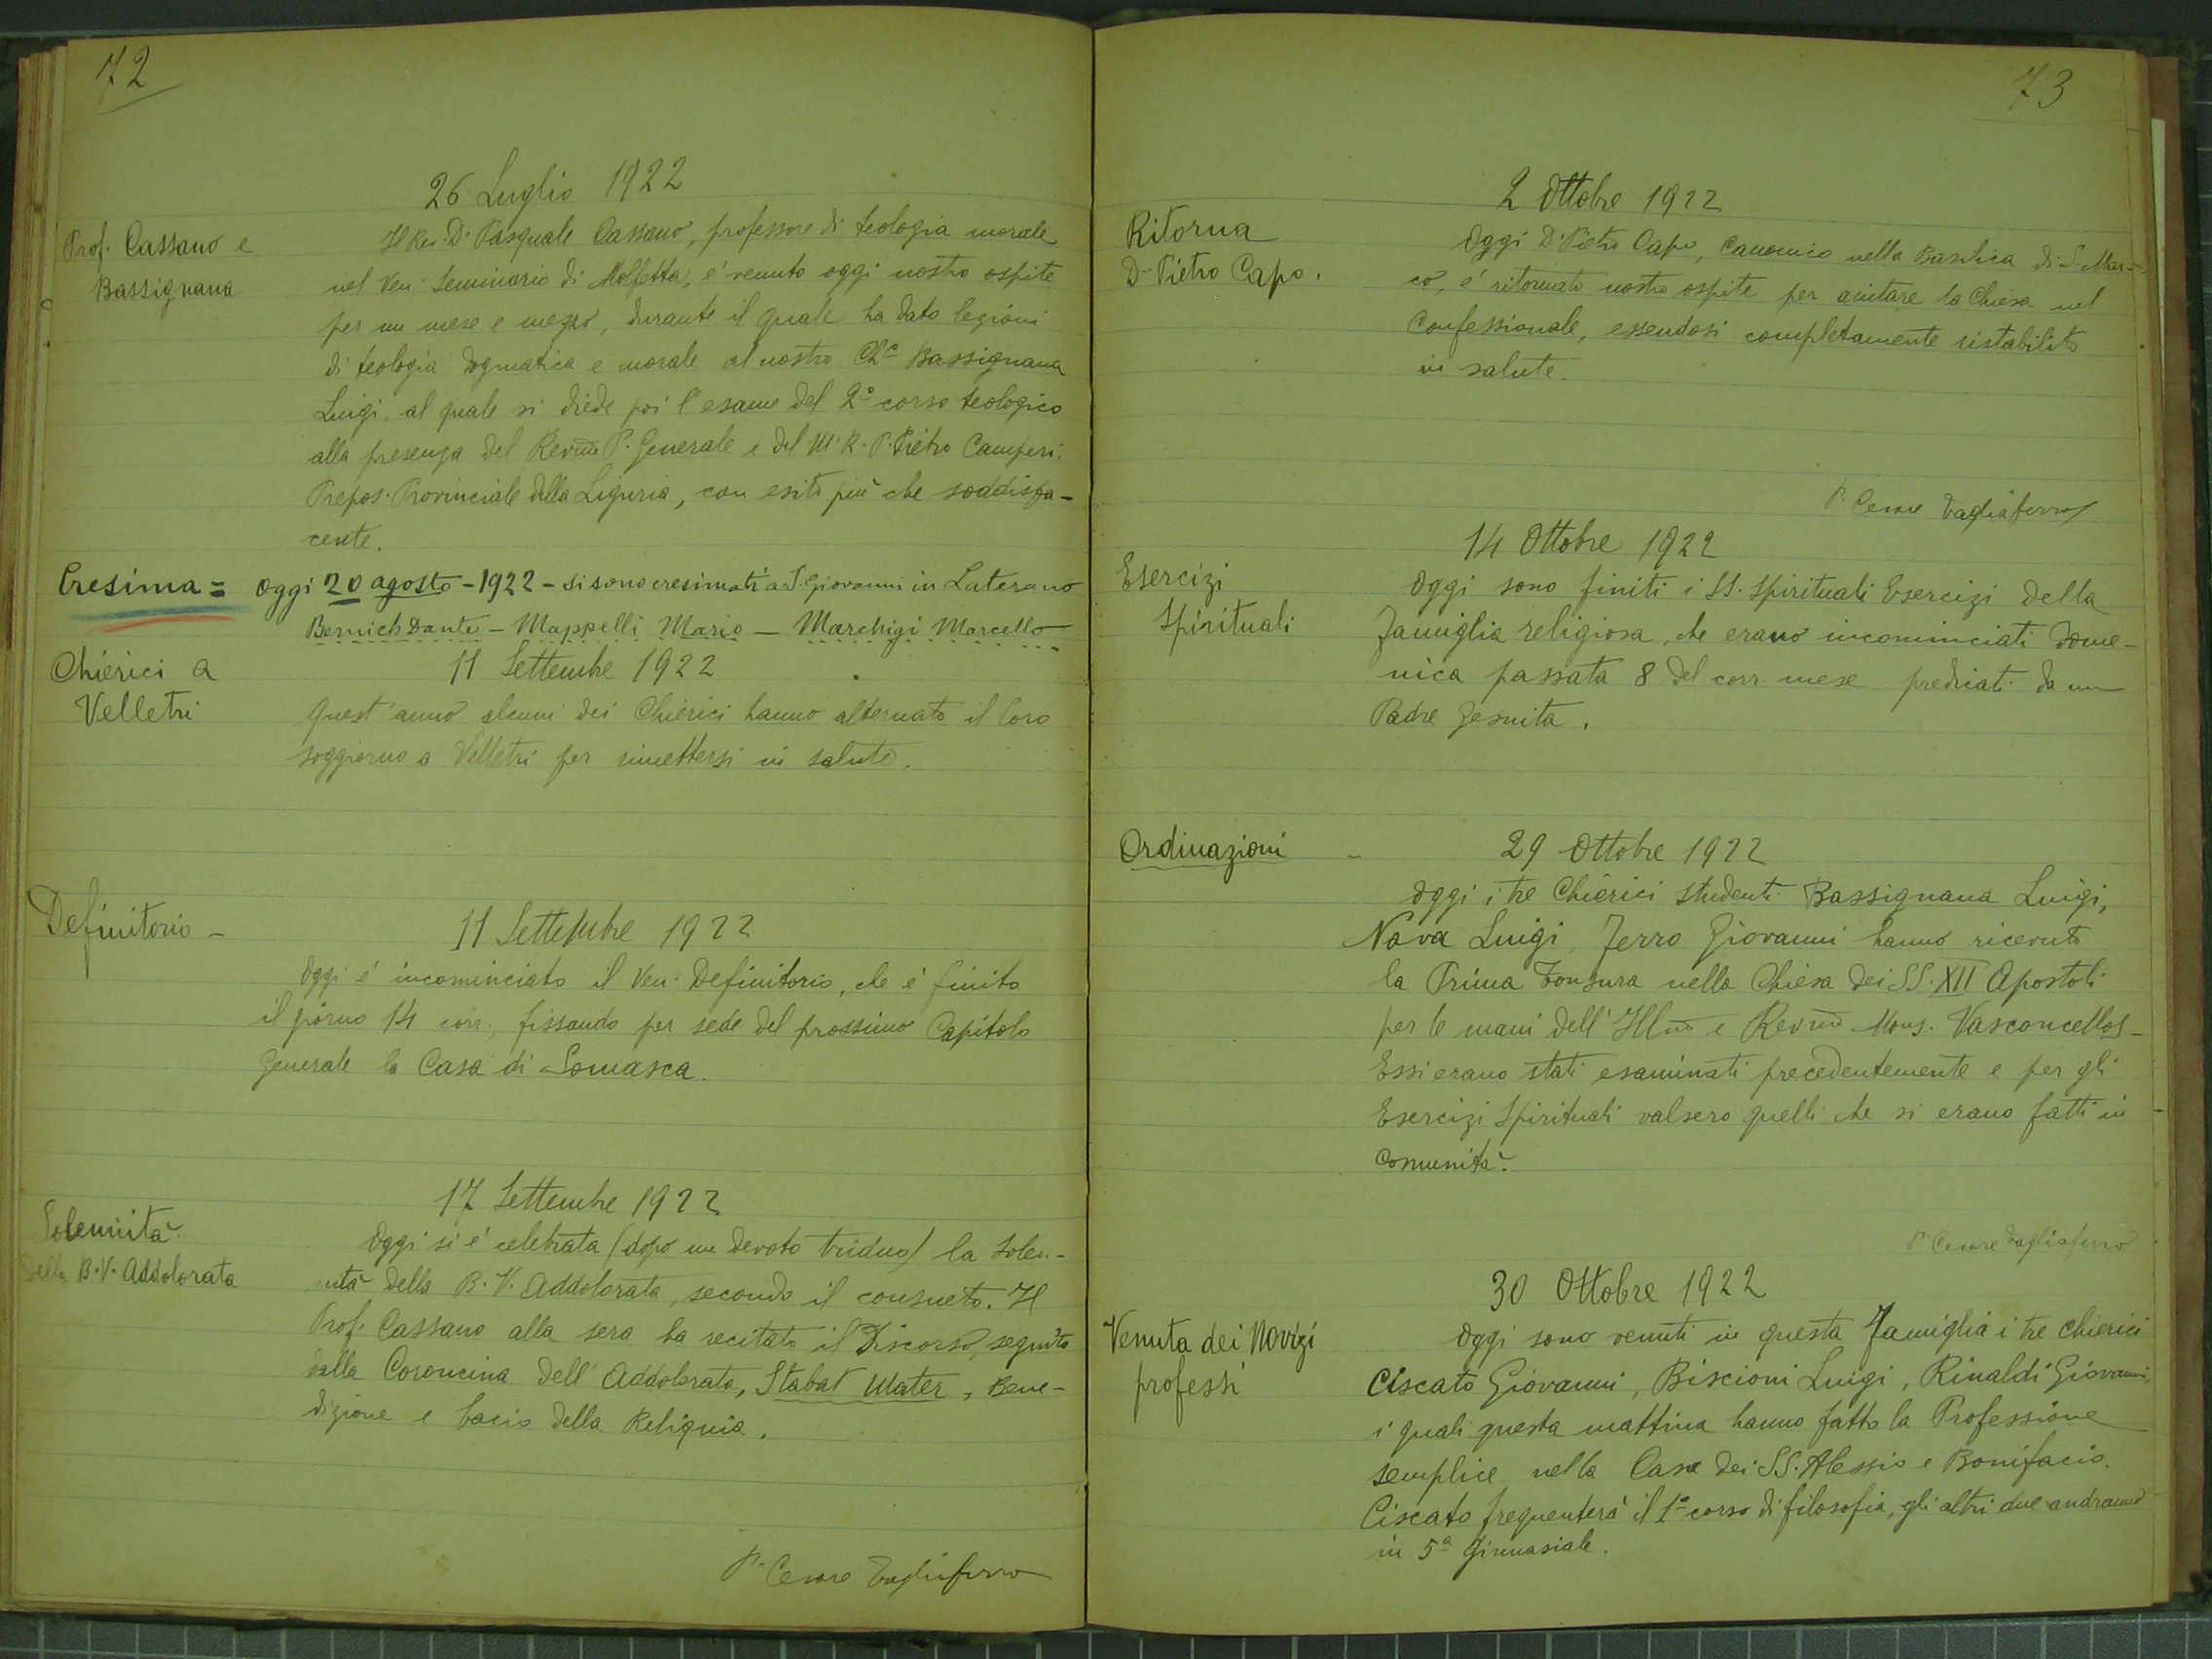 72
26 Luglio 1922
Prof. Cassano e
Bassignana
Il Rev. D. Pasquale Cassano, professore di teologia morale
nel Ven. Seminario di Molfetta, é venuto oggi nostro ospite
per un mese e mezzo, durante il quale ha dato lezioni
di teologia dogmatica e morale al nostro Ch.º Bassignana
Luigi, al quale si diede poi l'esame del 2º corso teologico
alla presenza del Revmo P. Generale e del M. R. P. Pietro Camperi,
Prepos. Provinciale della Liguria, con esito più che soddisfa-
cente.
Cresima = Oggi 20 agosto - 1922 - si sono cresimati a S. Giovanni in Laterano
Bernich Dante - Mappelli Mario - Marchigi Marcello
Chierici a
Velletri
11 Settembre 1922
Quest'anno alcuni dei Chierici hanno alternato il loro
soggiorno a Velletri per rimettersi in salute.
Definitorio -
11 Settembre 1922
Oggi é incominciato il Ven. Definitorio, che é finito
il giorno 14 corr., fissando per sede del prossimo Capitolo
Generale la Casa di Somasca.
17 Settembre 1922
Solennità
della B. V. Addolorata
Oggi si é celebrata (dopo un devoto triduo) la Solen-
nità della B. V. Addolorata, secondo il consueto. Il
Prof. Cassano alla sera ha recitato il Discorso, seguito
dalla Coroncina dell'Addolorata, Stabat Mater, Bene-
dizione e bacio della Reliquia.
P. Cesare Tagliaferro
73
2 Ottobre 1922
Ritorna
D. Pietro Capo.
Oggi D. Pietro Capo, Canonico nella Basilica di S. Mar-
co, é ritornato nostro ospite per aiutare la Chiesa nel
Confessionale, essendosi completamente ristabilito
in salute.
P. Cesare Tagliaferro
14 Ottobre 1922
Esercizi
Spirituali
Oggi sono finiti i SS. Spirituali Esercizi della
Famiglia religiosa, che erano incominciati Dome-
nica passata 8 del corr. mese predicati da un
Padre Gesuita.
Ordinazioni -
29 Ottobre 1922
Oggi i tre Chierici studenti Bassignana Luigi,
Nava Luigi, Ferro Giovanni hanno ricevuto
la Prima Tonsura nella Chiesa dei SS. XII Apostoli
per le mani dell'Illmo e Revmo Mons. Vasconcellos -
Essi erano stati esaminati precedentemente e per gli
Esercizi Spirituali valsero quelli che si erano fatti in
Comunità.
P. Cesare Tagliaferro
30 Ottobre 1922
Venuta dei Novizi
professi
Oggi sono venuti in questa Famiglia i tre chierici
Ciscato Giovanni, Biscioni Luigi, Rinaldi Giovanni,
i quali questa mattina hanno fatto la Professione
semplice nella Casa dei SS. Alessio e Bonifacio.
Ciscato frequenterà il 1º corso di filosofia, gli altri due andranno
in 5ª Ginnasiale.